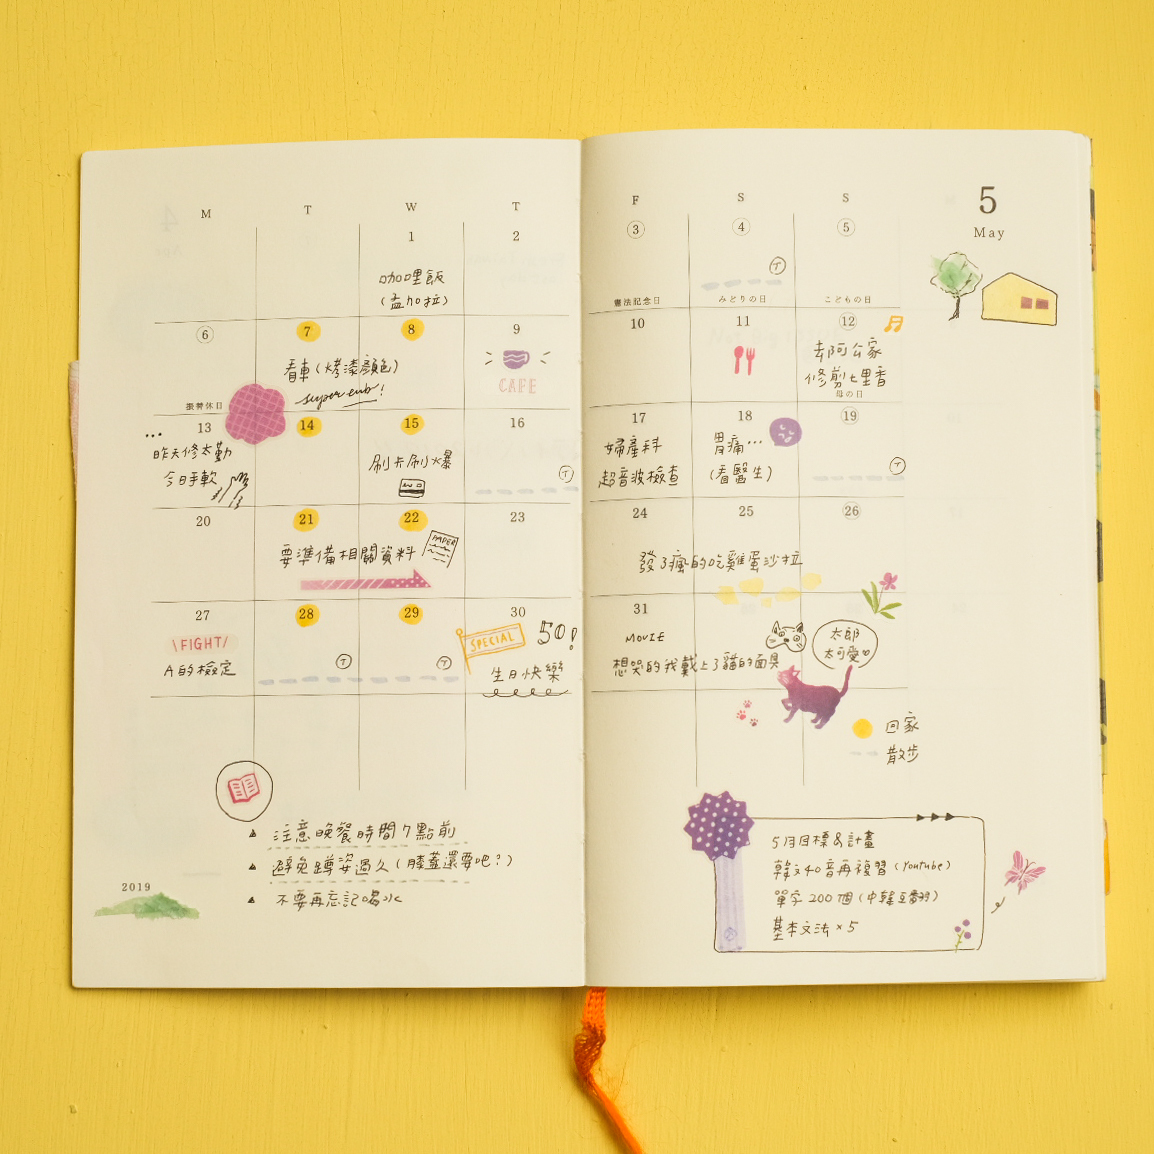 5
May
M
T
W
T
F
S
S
1
咖哩飯
(孟加拉)
2
3
憲法記念日
4
T
みどりの日
5
こどもの日
6
振替休日
7
8
看車(烤漆顏色)
super cub!
9
CAFE
10
11
12
去阿公家
修剪七里香
母の日
13
...
昨天修太勤
今日手軟
14
15
刷卡刷火爆
16
T
17
婦產科
超音波檢查
18
胃痛...
(看醫生)
19
T
20
21
22
要準備相關資料
PAPER
23
24
25
26
發了瘋的吃雞蛋沙拉
27
\FIGHT/
A的檢定
28
T
29
T
30
SPECIAL
50!
生日快樂
31
MOVIE
想哭的我戴上了貓的面具
太郎
太可愛♡
回家
散步
▲ 注意晚餐時間7點前
▲ 避免蹲姿過久(膝蓋還要吧?)
▲ 不要再忘記喝水
2019
5月目標&計畫
韓文40音再複習(Youtube)
單字200個(中韓互翻)
基本文法×5